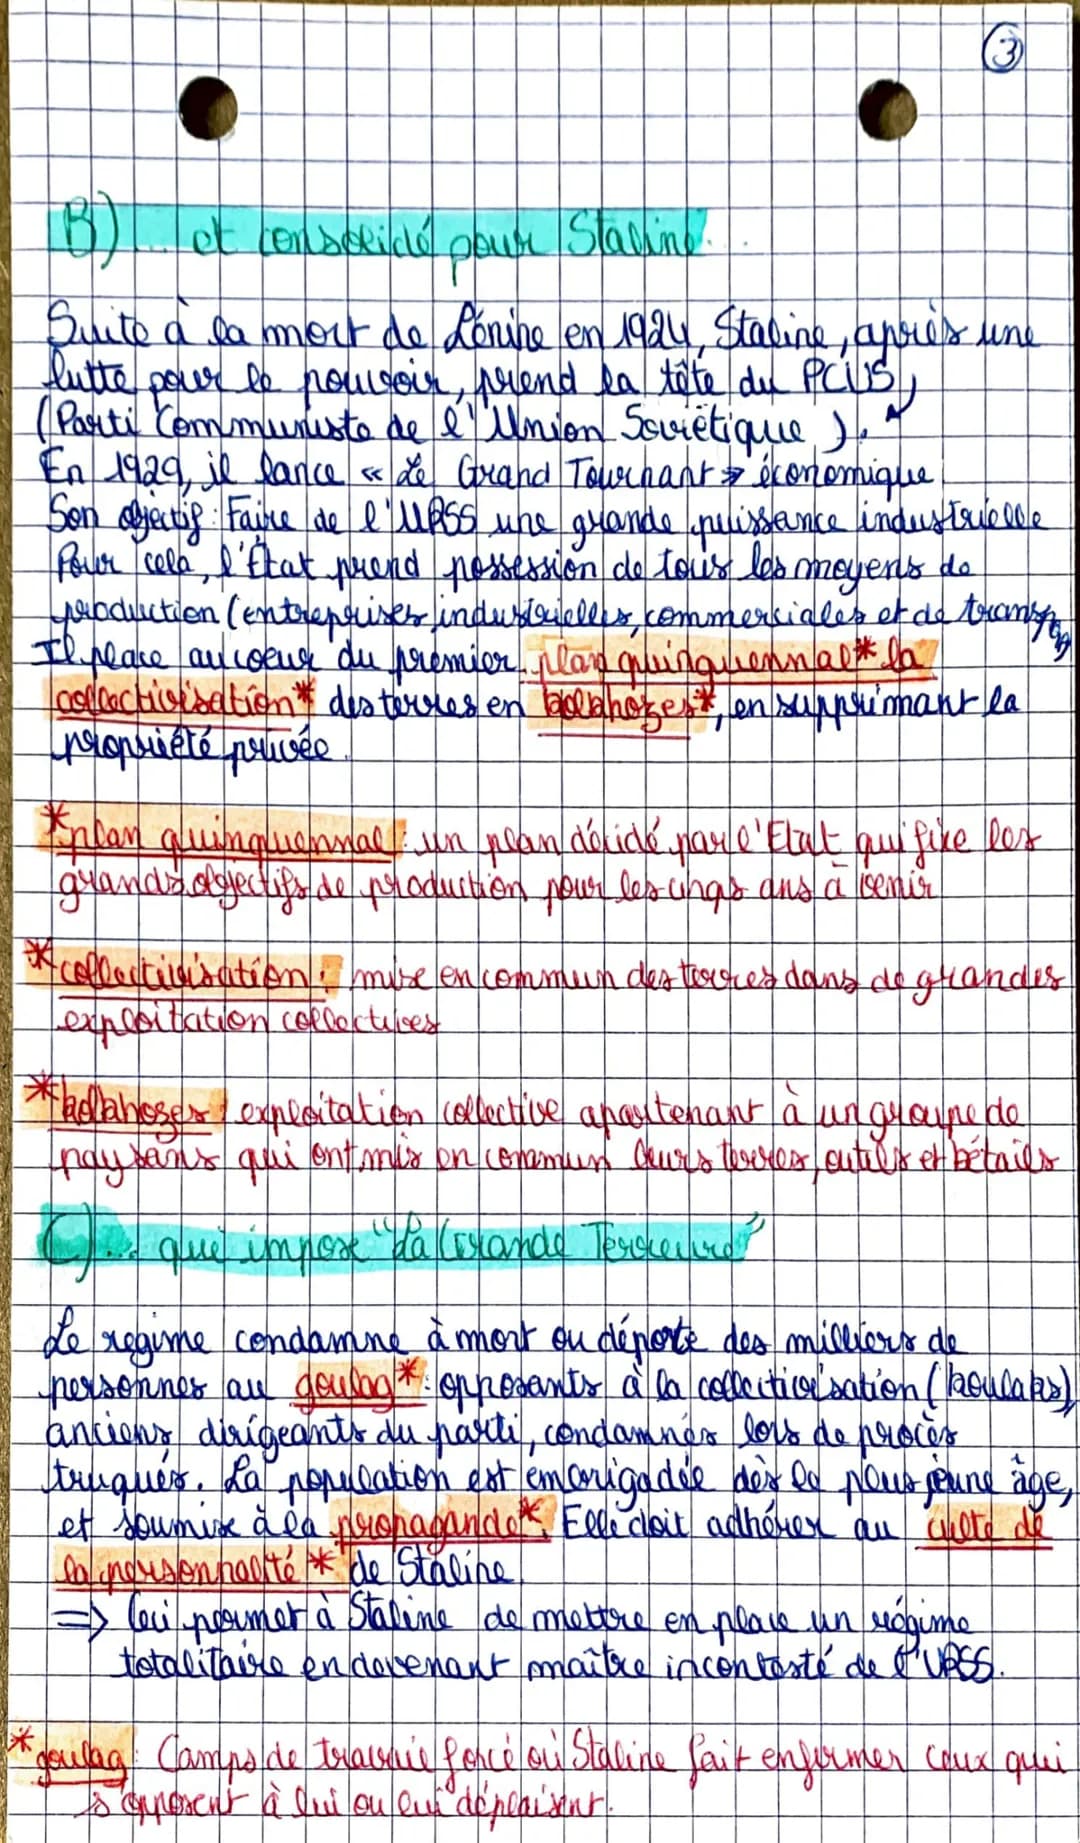 3
B) ... et consolidé pour Staline...
Suite à la mort de Lénine en 1924, Staline, après une
lutte pour le pouvoir, prend la tête du PCUS,
(Parti Communiste de l'Union Soviétique).
En 1929, il lance « Le Grand Tournant » économique
Son objectif : Faire de l'URSS une grande puissance industrielle
Pour cela, l'État prend possession de tous les moyens de
production (entreprises industrielles, commerciales et de transp
Il place au coeur du premier plan quinquennal* la
collectivisation* des terres en kolkhozes*, en supprimant la
propriété privée.
*plan quinquennal : un plan décidé par l'Etat qui fixe les
grands objectifs de production pour les cinqs ans à venir
*collectivisation : mise en commun des terres dans de grandes
exploitation collectives
*kolkhozes : exploitation collective apartenant à un groupe de
paysans qui ont mis en commun leurs terres, outils et bétails
C) ... que impose "La Grande Terreure"
Le regime condamne à mort ou déporte des milliers de
personnes au goulag* : opposants à la collectivisation (koulaks)
anciens dirigeants du parti, condamnés lors de procès
truqués. La population est embrigadée dès le plus jeune âge,
et soumise à la propagande*. Elle doit adhérer au culte de
la personnalité* de Staline.
=> Ceci permet à Staline de mettre en place un régime
totalitaire en devenant maître incontesté de l'URSS.
*goulag : Camps de travail forcé où Staline fait enfermer ceux qui
s'opposent à lui ou lui déplaisent.